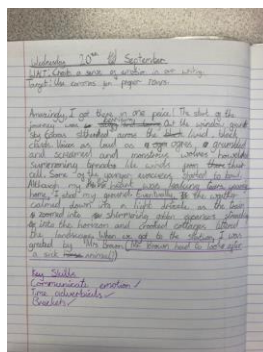 Wednesday 20th September
WALT: Create a sense of emotion in our writing.
Target: Use commas for proper nouns.
Amazingly, I got there in one piece! The start of the
journey Out the window grand
sky echoes slithered across the black
clouds loud as ogres, it grumbled
and screamed and monstrous wolves howled
summoning the winds from there
cell. Some of the younger evacuees started to bawl.
Although my heart was
home, I Eventually the weather
calmed down into a light drizzle as the train
zoomed into shimmering steadily
into the horizon and crooked cottages littered
the landscape. When we got to the station, I was
greeted by Mrs Brown (Mr Brown had to look after
a sick animal)!
Key Skills
Communicate emotion ✓
Time adverbials ✓
Brackets ✓